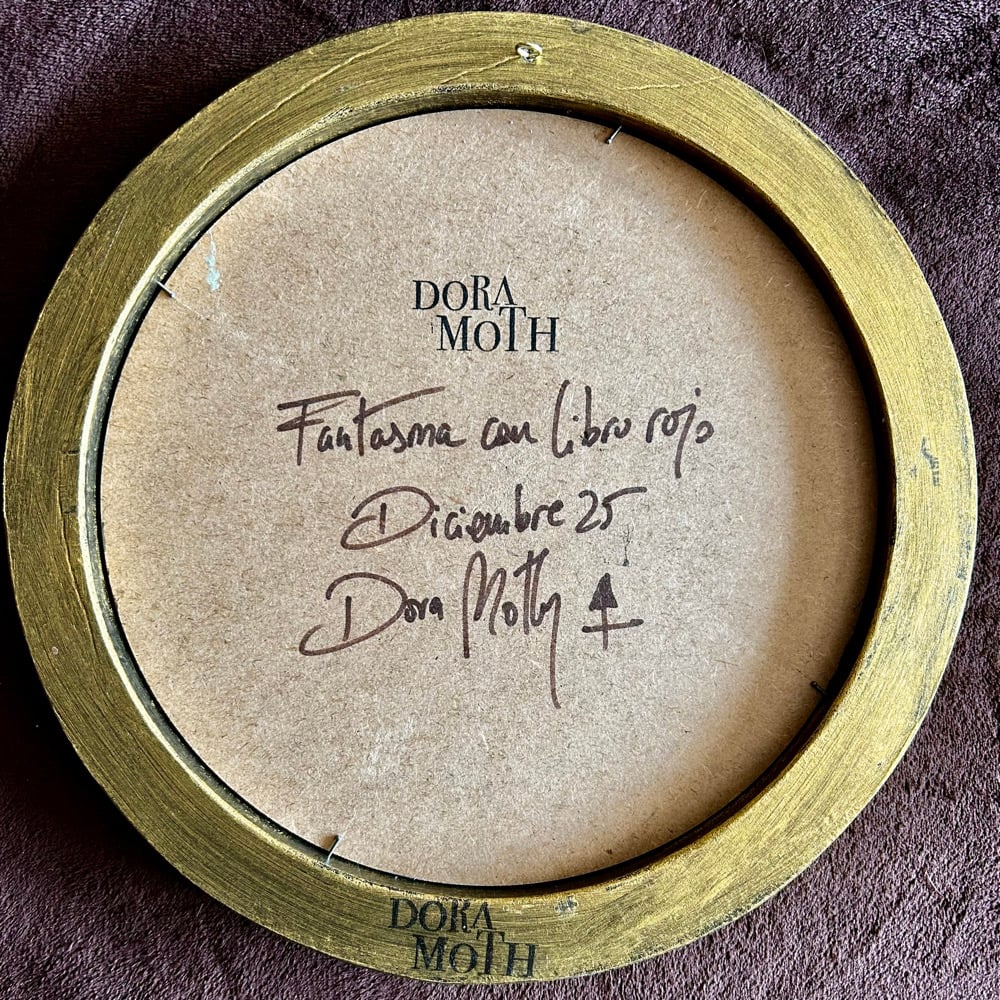 DORA
MOTH
Fantasma con libro rojo
Diciembre 25
Dora Moth
DORA
MOTH